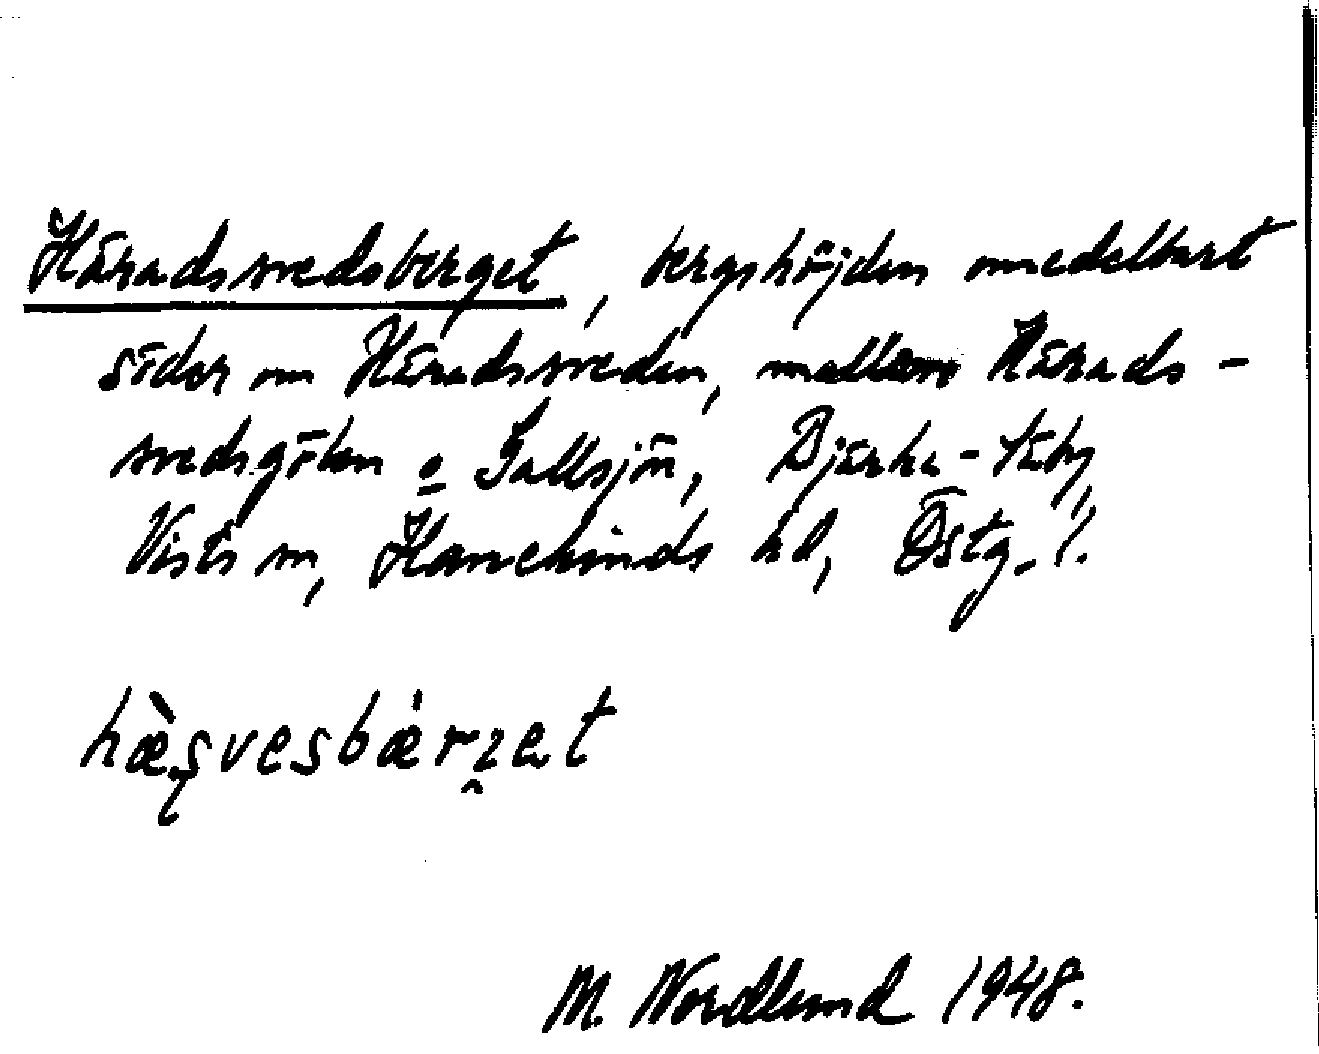 Häradssvedsberget, bergshöjden omedelbart
söder om Häradssveden, mellan Härads-
svedsgölen o Gallsjön, Bjärka-Säby,
Vists sn, Hanekinds hd, Östg. l.
hæ̀ʂvesbærʒet
M. Nordlund 1948.